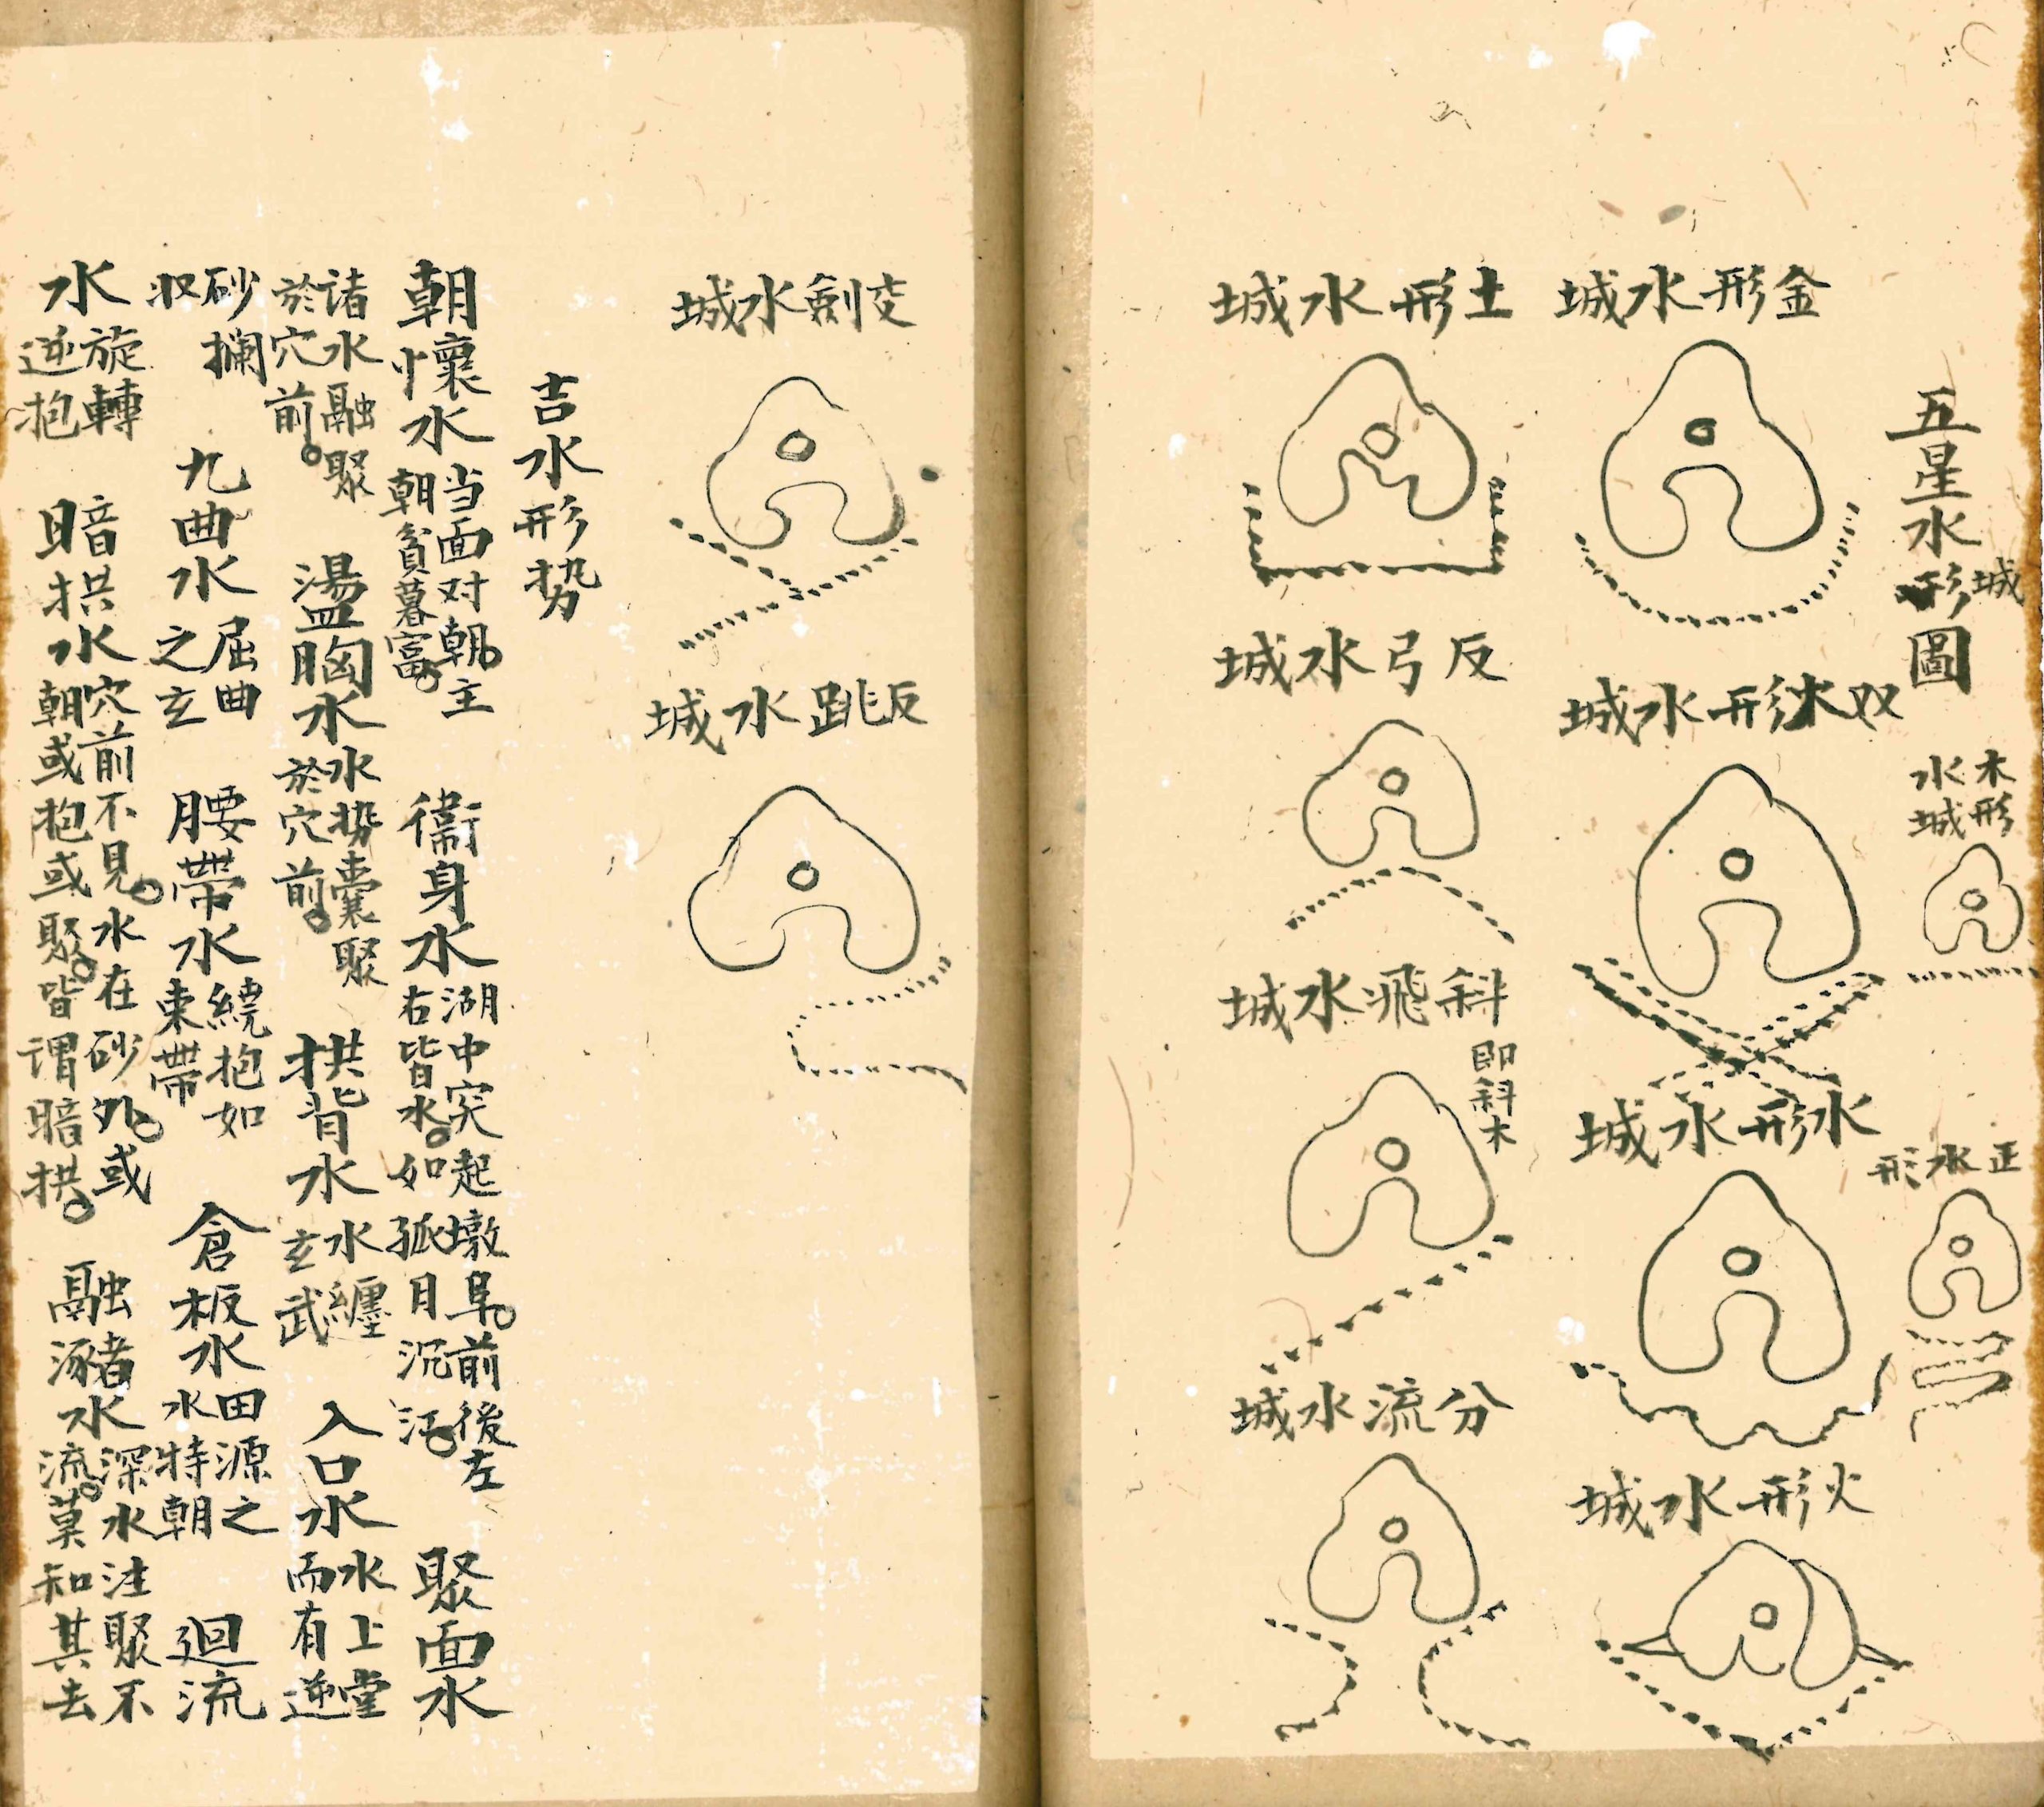 五星水形城圖
木形水城
正水形
金形水城
双火形水城
水形水城
火形水城
土形水城
反弓水城
斜飛水城
即斜木
分流水城
交劍水城
反跳水城
吉水形势
朝懷水 当面对朝主朝貧暮富 衞身水 湖中突起墩阜前後左右皆水如孤月沉江 聚面水
諸水融聚於穴前 盪胸水 水势囊聚於穴前 拱背水 水纏玄武 入口水 水上堂而有逆
砂攔収 九曲水 屈曲之玄 腰帶水 繞抱如束帶 倉板水 田源之水特朝 迴流
水 旋轉逆抱 暗拱水 穴前不見水在砂外或朝或抱或聚皆謂暗拱 融瀦水 深水注聚不流莫知其去